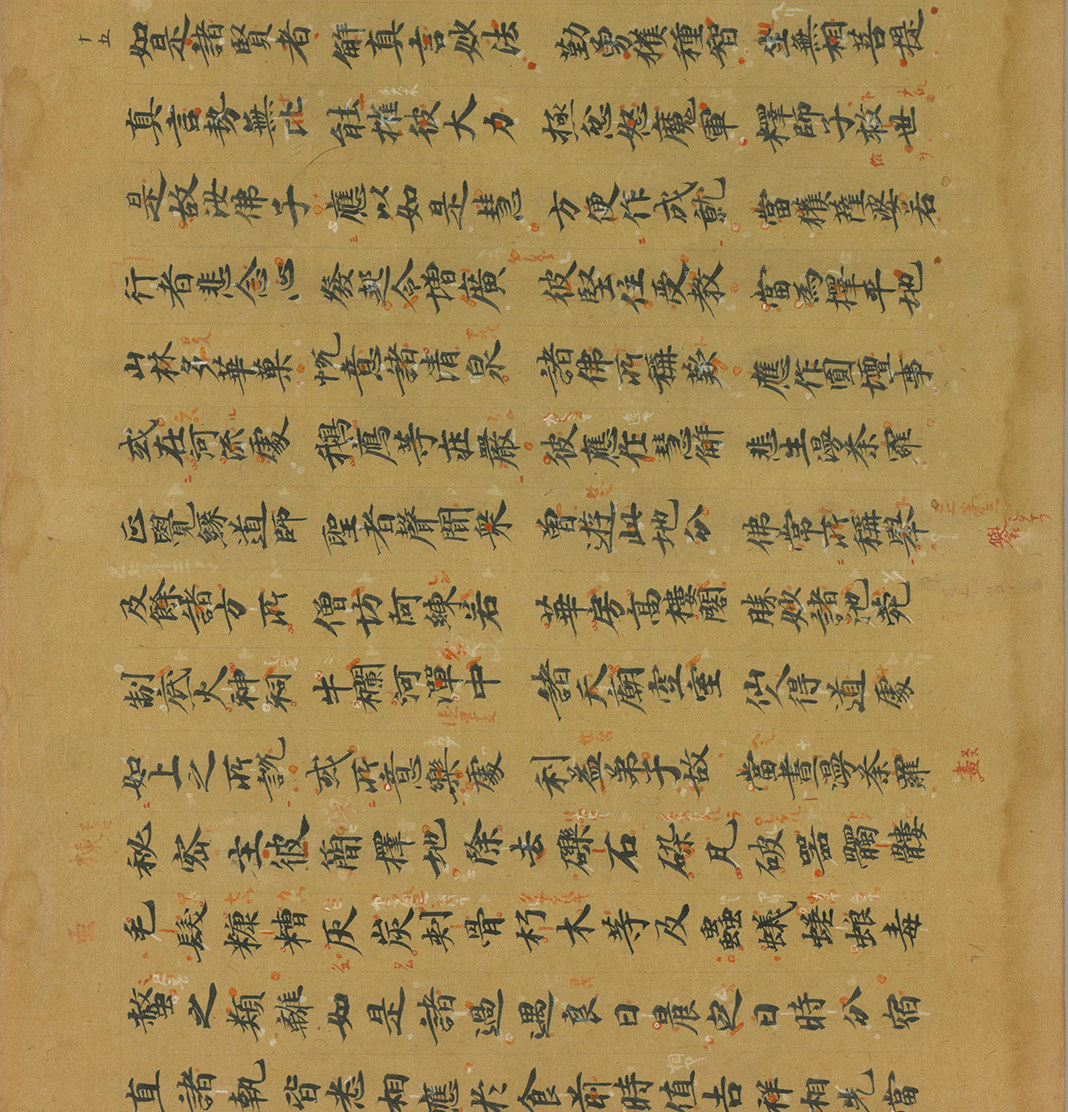 十五
如是諸賢者 解真言妙法 勤勇獲種智 坐無相菩提
真言勢無比 能摧彼大力 極忿怒魔軍 釋師子救世
是故汝佛子 應以如是慧 方便作成就 當獲薩婆若
行者悲念心 發起令增廣 彼堅住受教 當為擇平地
山林多華菓 悅意諸清泉 諸佛所稱歎 應作圓壇事
或在河流處 鵝鴈等莊嚴 彼應作慧解 悲生漫荼羅
正覺緣導師 聖者聲聞眾 曾遊此地分 佛常所稱譽
及餘諸方所 僧坊阿練若 華房高樓閣 勝妙諸池苑
制底火神祠 牛欄河潬中 諸天廟空室 仙人得道處
如上之所說 或所意樂處 利益弟子故 當畫漫荼羅
秘密主彼簡擇地除去礫石碎瓦破器髑髏
毛髮糠糟灰炭刺骨朽木等及蟲蟻蜣蜋毒
螫之類離如是諸過遇良日晨定日時分宿
直諸執皆悉相應於食前時值吉祥相先當